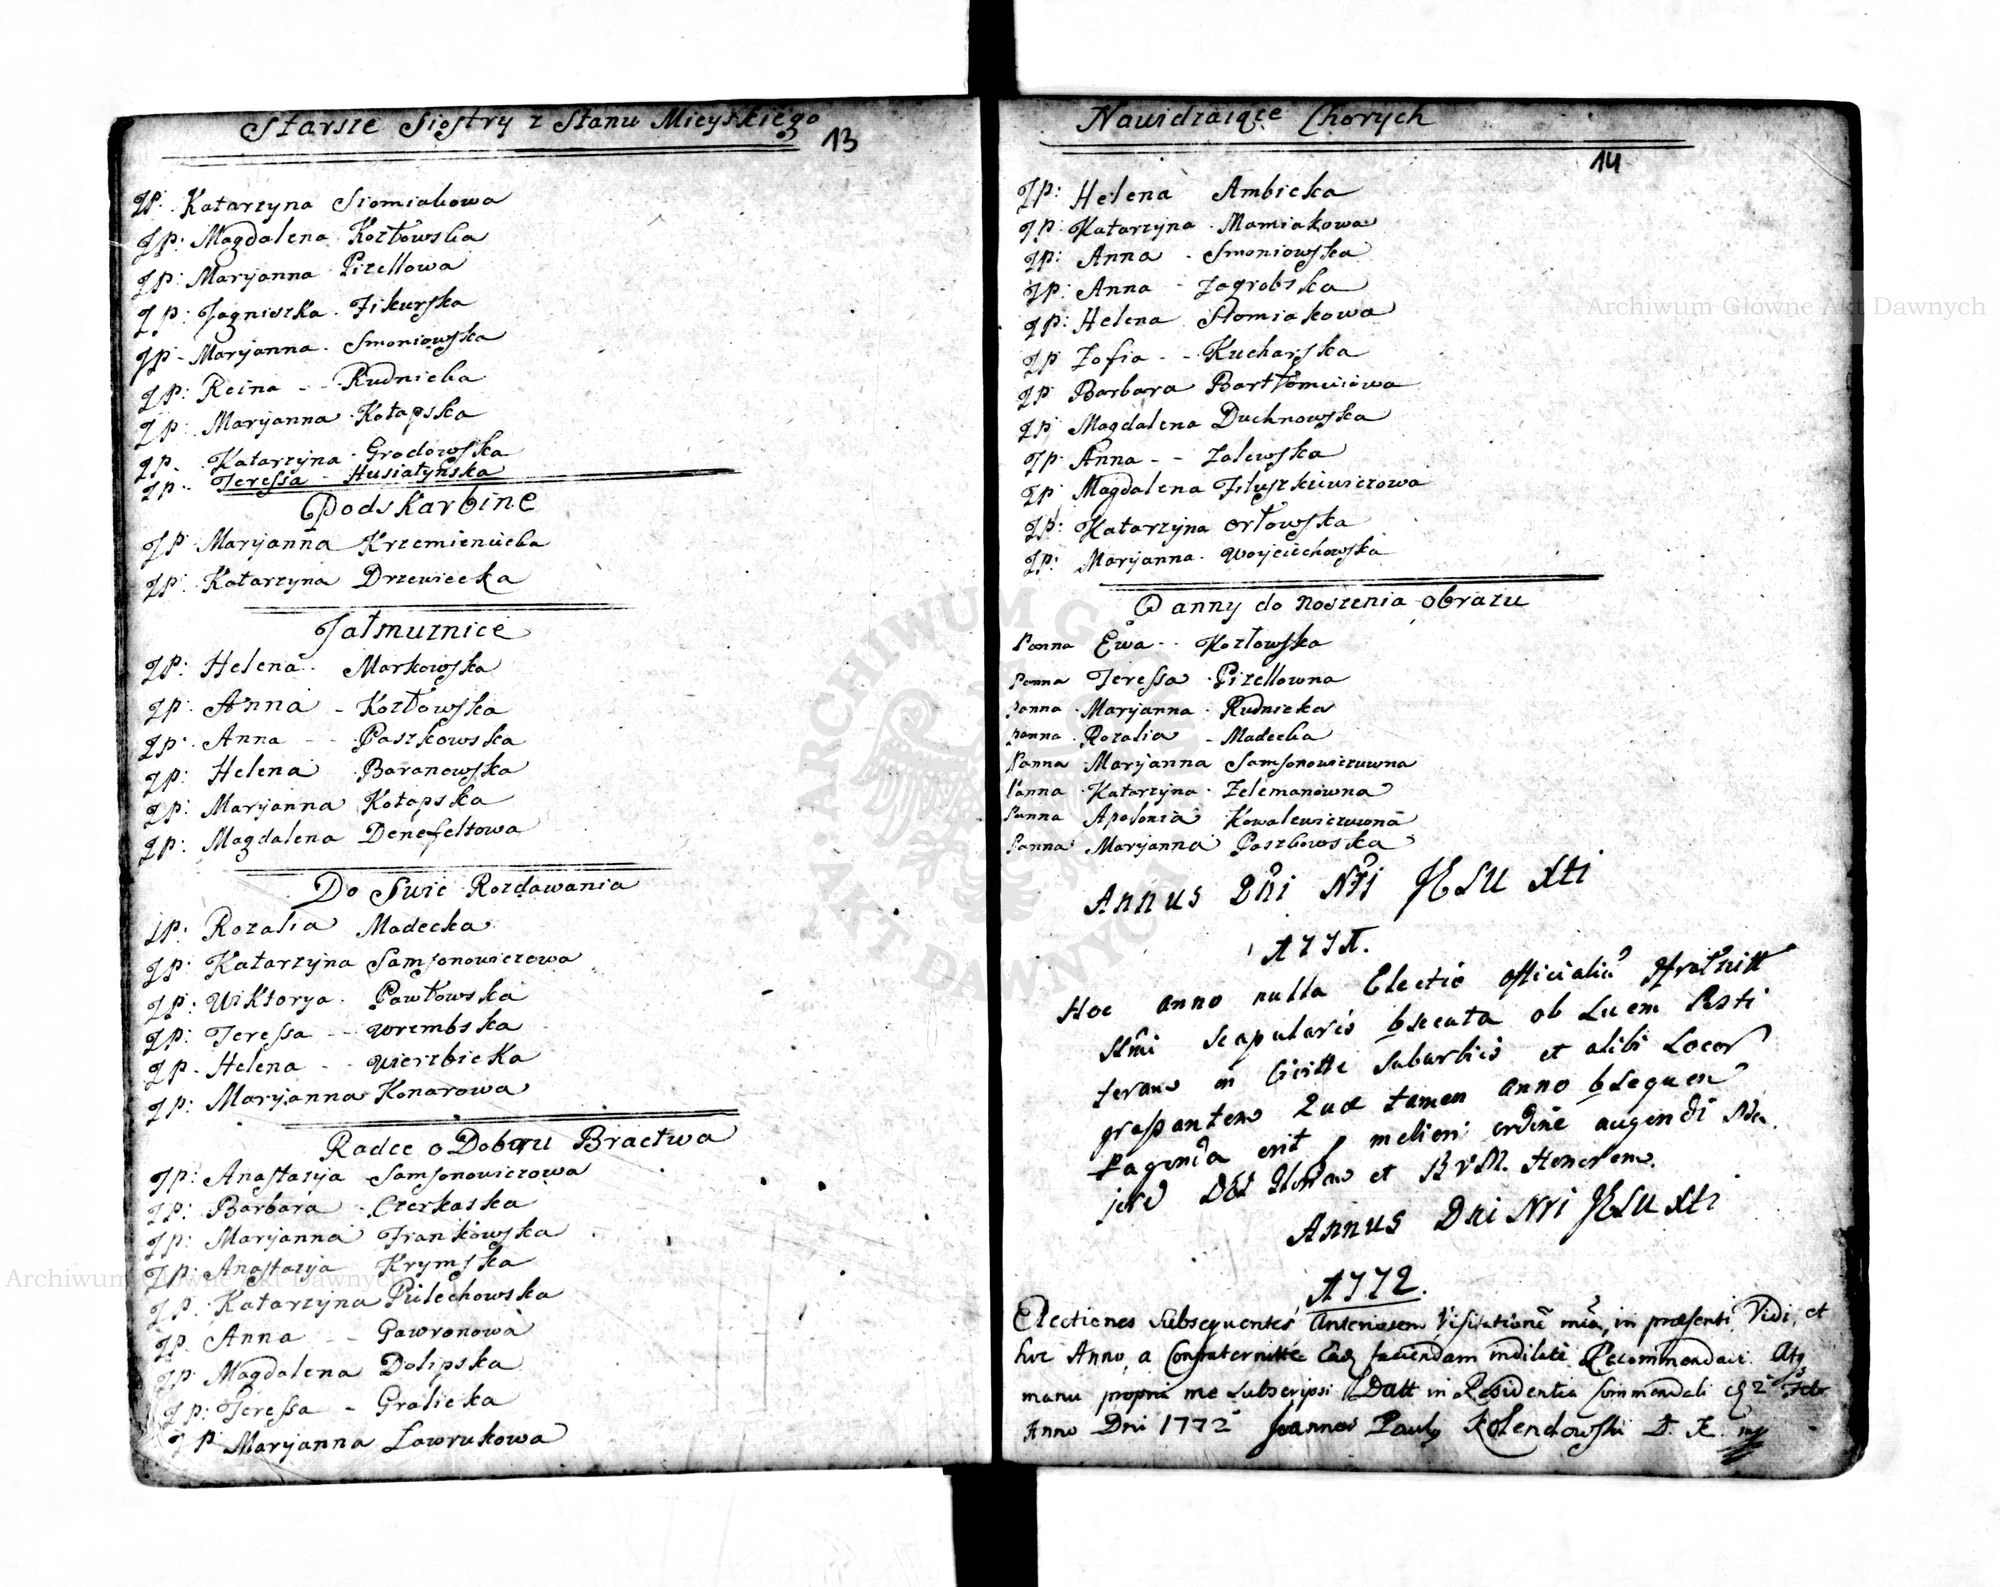 Starsze Siostry z Stanu Mieyskiego
13
JP: Katarzyna Siomiakowa
JP: Magdalena Kozłowska
JP: Maryanna Pizellowa
JP: Jagniszka Fikurska
JP: Maryanna Smoniowska
JP: Reina Rudnicka
JP: Maryanna Kołapska
JP: Katarzyna Grodowska
JP: Teressa Husiatyńska
Podskarbine
JP: Maryanna Krzemieniecka
JP: Katarzyna Drzewiecka
Jałmuznice
JP: Helena Markowska
JP: Anna Kozłowska
JP: Anna Paszkowska
JP: Helena Baranowska
JP: Maryanna Kołapska
JP: Magdalena Denefeltowa
Do Swic Rozdawania
JP: Rozalia Madecka
JP: Katarzyna Samsonowiczowa
JP: Wiktorya Pawłowska
JP: Teressa Wrembska
JP: Helena Wierzbicka
JP: Maryanna Konarowa
Radce o Dobru Bractwa
JP: Anastazya Samsonowiczowa
JP: Barbara Czerkaska
JP: Maryanna Frankowska
JP: Anastazya Krymska
JP: Katarzyna Pulechowska
JP: Anna Gawronowa
JP: Magdalena Dolipska
JP: Teressa Gralicka
JP Maryanna Lawrukowa
Nawidzaiące Chorych
14
JP: Helena Ambicka
JP: Katarzyna Mamiakowa
JP: Anna Smoniowska
JP: Anna Zagrobska
JP: Helena Słomiakowa
JP Zofia Kucharska
JP Barbara Bartłomieiowa
JP Magdalena Duchnowska
JP Anna Zalewska
JP Magdalena Filuszkiewiczowa
JP: Katarzyna Orłowska
JP: Maryanna Woyciechowska
Panny do noszenia obrazu
Panna Ewa Kozłowska
Panna Teressa Pizellowna
Panna Maryanna Rudnicka
Panna Rozalia Madecka
Panna Maryanna Samsonowiczuwna
Panna Katarzyna Zelemanowna
Panna Apolonia Kowalewiczuwna
Panna Maryanna Paszkowska
Annus Dni Nri JESU Xti
1771.
Hoc anno nulla Electio officialiu
Scapularis ob Luem Pesti
feram in Suburbiis et alibi Locor
grassantem Quae tamen anno bsequen
erit meliori ordine augendi
et BVM. Honorem.
Annus Dni Nri JESU Xti
1772.
Electiones Subsequentes Anteriorem Visitatione mea, in praesenti Vidi, et
hoc Anno, a Confraternitte faciendam Recommendavi. Atq
manu propria me Subscripsi Datt in Residentia Commendali 2 Febr
Anno Dni 1772 Joannes Paul Kolendowski D. K. mp
Archiwum Główne Akt Dawnych
Archiwum Główne Akt Dawnych
ARCHIWUM GŁÓWNE AKT DAWNYCH